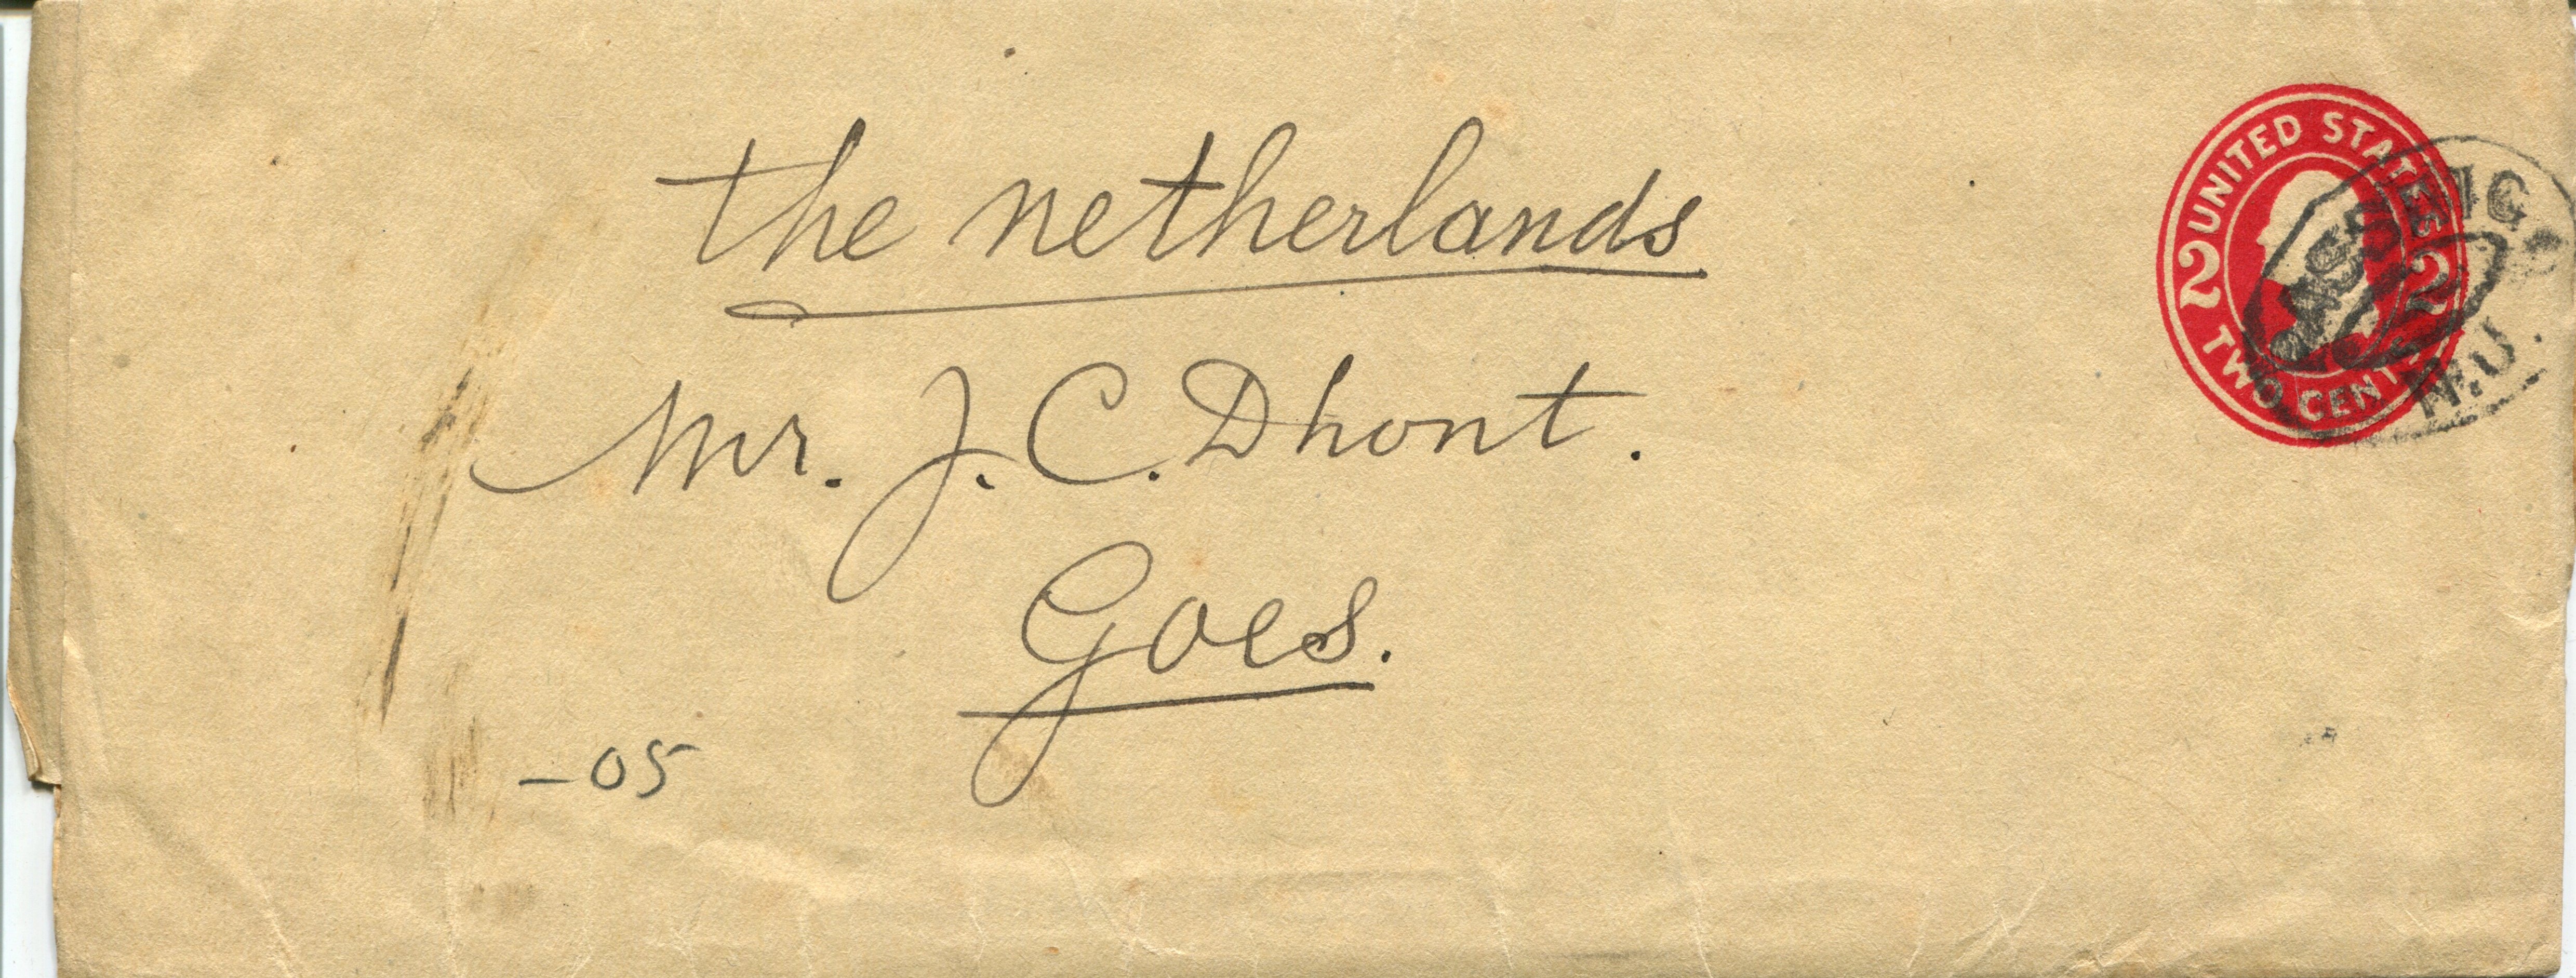 the netherlands
Mr. J. C. Dhont.
Goes.
-05
UNITED STATES
2 2
TWO CENTS
N.Y.